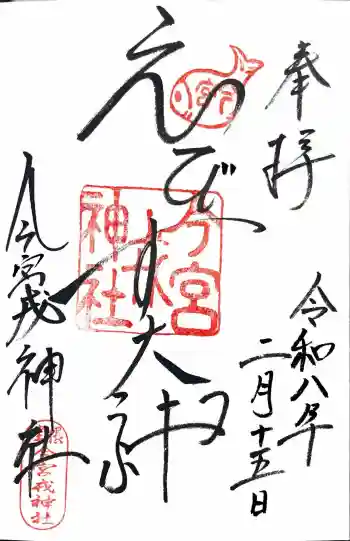 奉拝
令和八年
二月十五日
えびす大神
今宮
戎
神社
今宮戎神社
今宮戎神社